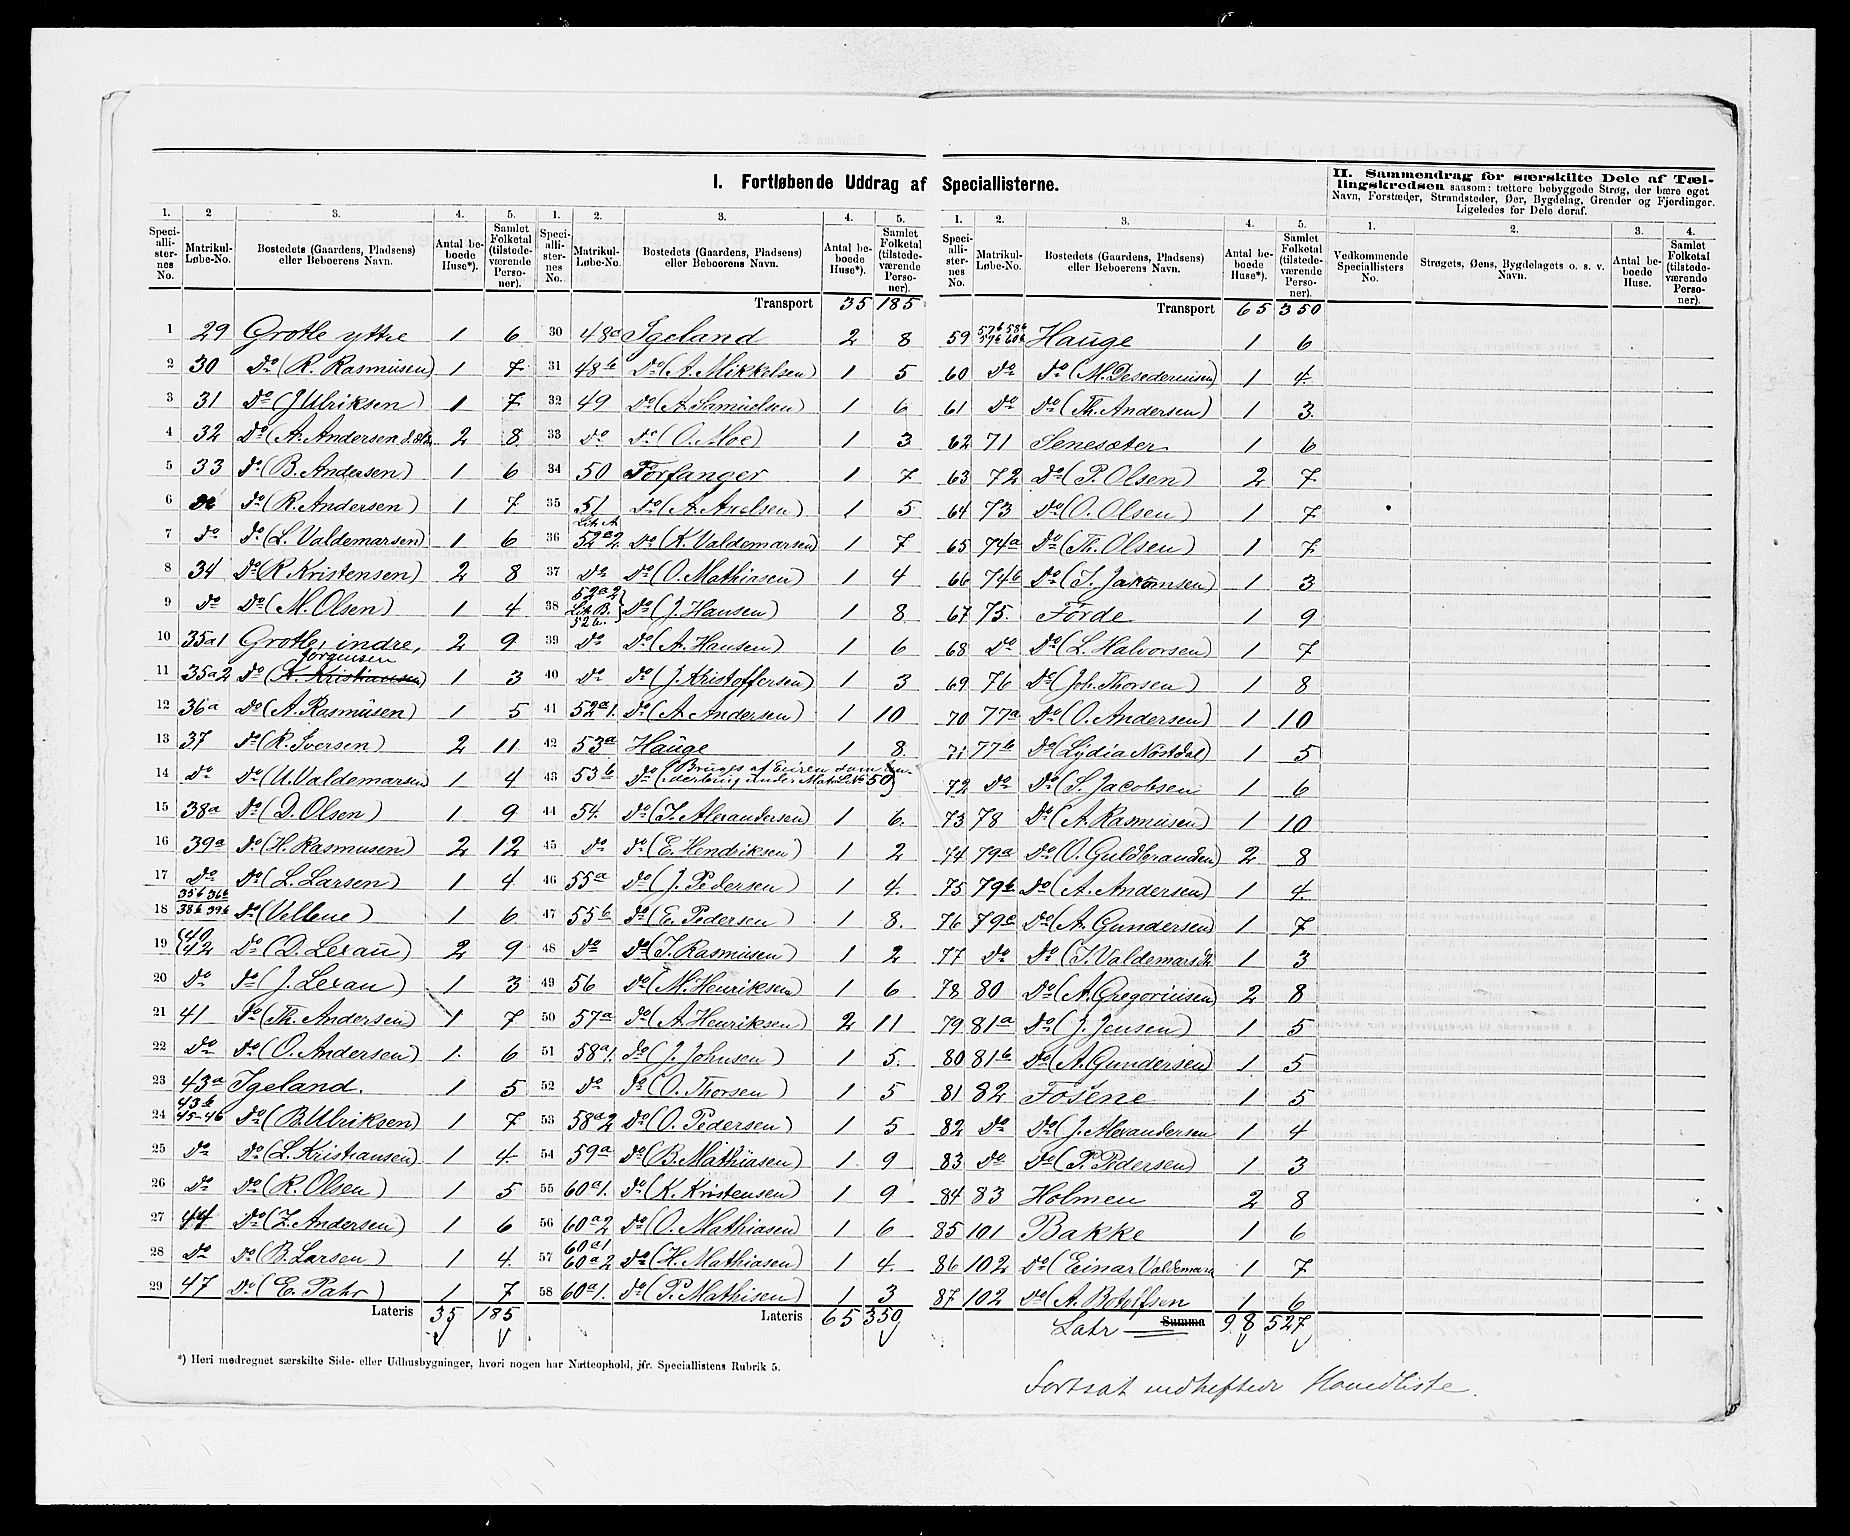 I. Fortløbende Uddrag af Speciallisterne.
II. Sammendrag for særskilte Dele af Tællingskredsen saasom: tættere bebyggede Strøg, der bære eget
Navn, Forstæder, Strandsteder, Øer, Bygdelag, Grender og Fjerdinger.
Ligeledes for Dele deraf.
1. 2 3. 4. 5.
Speciallisternes No. Matrikul-Løbe-No. Bostedets (Gaardens, Pladsens) eller Beboerens Navn. Antal beboede Huse*). Samlet Folketal (tilstedeværende Personer).
1 29 Grotle yttre 1 6
2 30 Do (R. Rasmusen) 1 7
3 31 Do (J Ulriksen) 1 7
4 32 Do (A. Andersen 2 8
5 33 Do (B. Andersen) 1 6
6 Do Do (R. Andersen) 1 7
7 Do Do (L. Valdemarsen) 1 6
8 34 Do (R Kristensen) 2 8
9 Do Do (M. Olsen) 1 4
10 35a1 Grotle, indre, 2 9
Jörgensen
11 35a2 Do (K. Kristiansen) 1 3
12 36a Do (A. Rasmüsen) 1 5
13 37 Do (R. Iversen) 2 11
14 Do Do (U. Valdemarsen 1 4
15 38a Do (D. Olsen) 1 9
16 39a Do (H. Rasmusen) 2 12
17 Do Do (L. Larsen) 1 4
35b 36b
18 38b 39b Do (Vellene) 1 6
40
19 42 Do (D. Lexau) 2 9
20 Do Do (J. Lexau) 1 3
21 41 Do (Th. Andersen) 1 7
22 Do Do (O. Andersen) 1. 6
23 43a Igeland. 1 5
43b
24 45-46 Do (B. Ulriksen) 1 7
25 Do Do (L. Kristiansen) 1 4.
26 Do Do (R. Olsen) 1 5
27 44 Do (Z. Andersen) 1 6
28 Do Do (B. Larsen) 1 4.
29 47 Do (E. Pahr) 1 7
Lateris 35 185
1. 2. 3. 4. 5.
Speciallisternes No. Matrikul-Løbe-No. Bostedets (Gaardens, Pladsens) eller Beboerens Navn. Antal beboede Huse*). Samlet Folketal (tilstedeværende Personer).
Transport 35 185
30 48a Igeland 2 8
31 48b Do (A. Mikkelsen) 1 5
32 49 Do (A. Samuelsen) 1 6
33 Do Do (O. Moe) 1 3
34 50 Förfanger 1 7
35 51 Do (A. Axelsen) 1 5
Lit. A
36 52a2. Do (K. Valdemarsen) 1 7
37 Do Do (O. Mathiasen) 1 4
52a2
38 Lit B. Do (J. Hansen) 1 8
52b.
39 Do Do (A. Hansen) 1 6
40 Do Do (J. Kristoffersen) 1 3
41 52a1. Do (A. Andersen) 1 10
42 53a Haüge 1 8
43 53b Do (Bruges af Eieren som
Matr. No 50)
44 54. Do (I. Alexandersen) 1 6.
45 Do Do (E. Hendriksen) 1 2
46 55a Do (J. Pedersen) 1 4.
47 55b Do (E. Pedersen) 1 8.
48 Do Do (I. Rasmüsen) 1 2
49 56 Do (M. Henriksen) 1 6
50 57a Do (A. Henriksen) 2 11
51 58a1. Do (J. Johnsen) 1 5.
52 Do Do (O. Thorsen) 1 5
53 58a2 Do (O. Pedersen) 1 5
54 59a Do (B. Mathiasen) 1. 9
55 60a1. Do (K. Kristensen) 1 9
56 60a2 Do (O. Mathiasen) 1 6
60a1.
57 60a2 Do (H. Mathiasen) 1 4.
58 60a1. Do (P. Mathisen) 1 3
Lateris 65 350
1. 2. 3. 4. 5.
Speciallisternes No. Matrikul-Løbe-No. Bostedets (Gaardens, Pladsens) eller Beboerens Navn. Antal beboede Huse*). Samlet Folketal (tilstedeværende Personer).
Transport 65 350
57b 58b
59 59b 60b Hauge 1 6
60 Do Do (M. Desederiusen) 1 4.
61 Do Do (Th. Andersen) 1 3.
62 71 Senesæter 1 6
63 72 Do (P. Olsen) 2 7
64 73 Do (O. Olsen) 1 7
65 74a Do (Th. Olsen) 1 7
66 74b Do (I. Jakobsen) 1 3
67 75. Förde 1 9
68 Do Do (L. Halvorsen) 1 7
69 76 Do (Joh. Thorsen) 1 8
70 77a Do (O. Andersen) 1 10
71 77b Do (Lydia Nöstdal) 1 5
72 Do Do (S. Jacobsen 1 6
73 78 Do (A. Rasmusen) 1 10
74 79a Do (O. Guldbranden) 2 8
75 79b Do (A. Andersen) 1 4.
76 79c Do (A. Gundersen) 1 7
77 Do Do (I. Valdemars 1 3
78 80 Do (A. Gregoriusen) 2 8
79. 81a Do (J. Jensen) 1 5
80 81b Do (A. Gundersen) 1 5
81 82 Fosene 1 5
82 Do Do (J. Alexandersen 1 4
83 Do Do (P. Pedersen) 1 3
84 83 Holmen 2 8
85 101 Bakke 1 6
86 102 Do (Einar Valdemars 1 7
87 102 Do (A. Botolfsen 1 6
Latr Summa 98 527
1. 2. 3. 4.
Vedkommende Speciallisters No. Strøgets, Øens, Bygdelagets o. s. v. Navn. Antal beboede Huse. Samlet Folketal (tilstedeværende Personer).
*) Heri medregnet særskilte Side- eller Udhusbygninger, hvori nogen har Natteophold, jfr. Speciallistens Rubrik 5.
Fortsat indheftede Hovedliste.